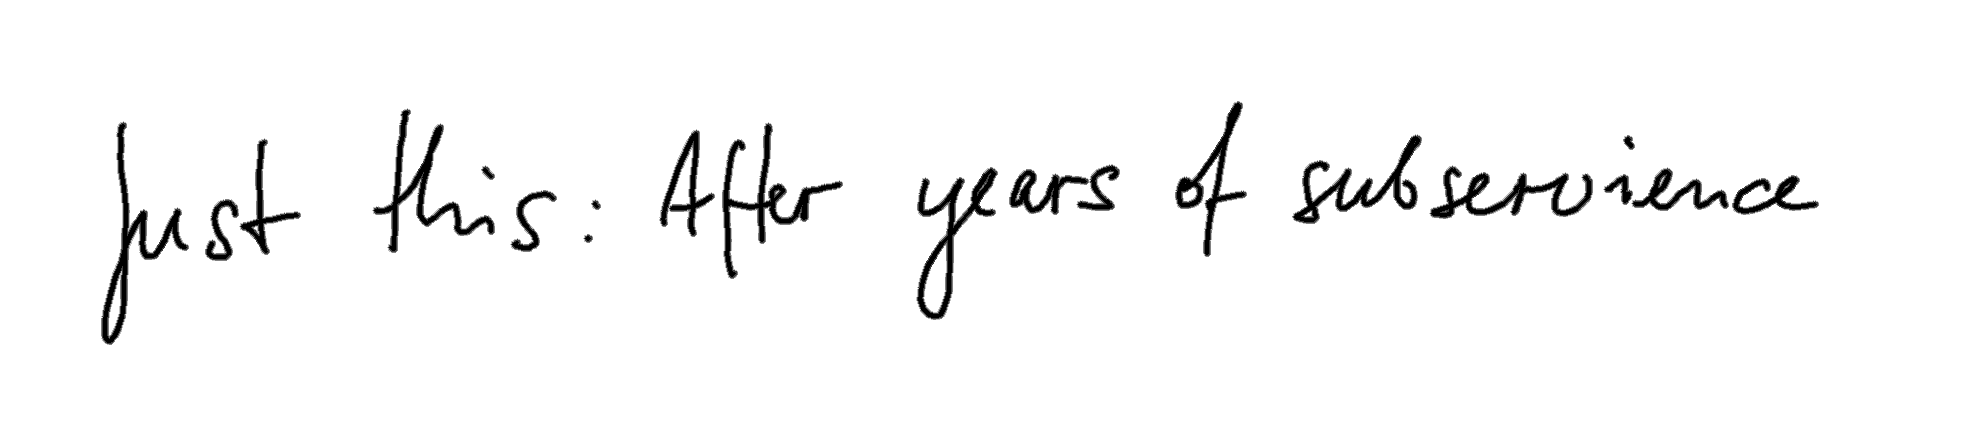 Just this: After years of subservience